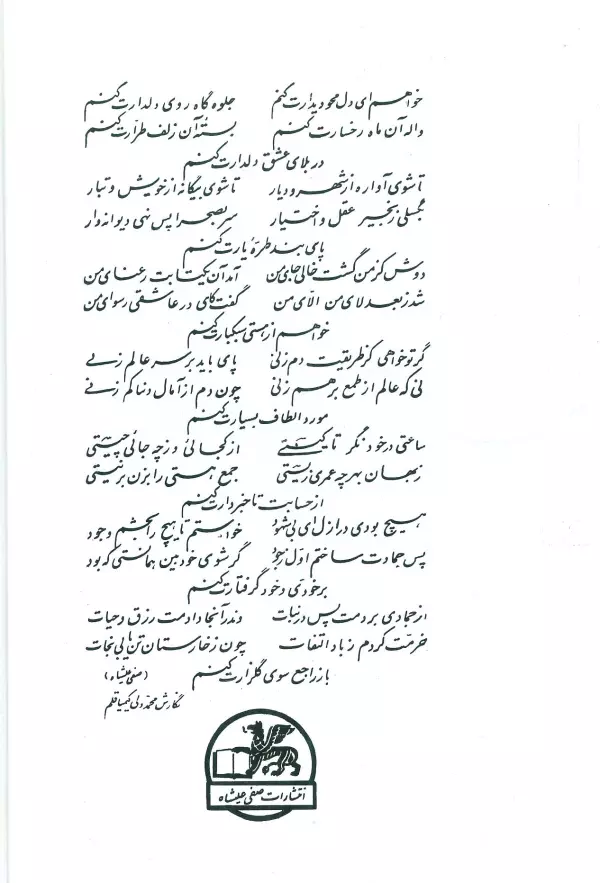 خواهم ای دل محو دیدارت کنم جلوه گاه روی دلدارت کنم
واله آن ماه رخسارت کنم بستهٔ آن زلف طرارت کنم
در بلای عشق دلدارت کنم
تا شوی آواره از شهر و دیار تا شوی بیگانه از خویش و تبار
بگسلی زنجیر عقل و اختیار سر بصحرا پس نهی دیوانه وار
پای بند طرهٔ یارت کنم
دوش کز من گشت خالی جای من آمد آن یکتا بت رعنای من
شد ز بعد لای من الای من گفت کای در عاشقی رسوای من
خواهم از هستی سبکبارت کنم
گر تو خواهی کز طریقت دم زنی پای باید بر سر عالم زنی
نی که عالم از طمع برهم زنی چون دم از آمال دنیا کم زنی
مورد الطاف بسیارت کنم
ساعتی در خود نگر تا کیستی از کجائی و ز چه جائی چیستی
در جهان بهر چه عمری زیستی جمع هستی را بزن بر نیستی
از حسابت تا خبردارت کنم
هیچ بودی در ازل ای بی شهود خواستم تا هیچ را بخشم وجود
پس جمادت ساختم اول ز جود گر شوی خودبین همانستی که بود
بر خودی و خود گرفتارت کنم
از جمادی بردمت پس در نبات وندر آنجا دادمت رزق و حیات
خرمت کردم ز باد التفات چون ز خارستان تن یابی نجات
باز راجع سوی گلزارت کنم
(صفی علیشاه)
نگارش محمد ولی کیمیا قلم
انتشارات صفی علیشاه